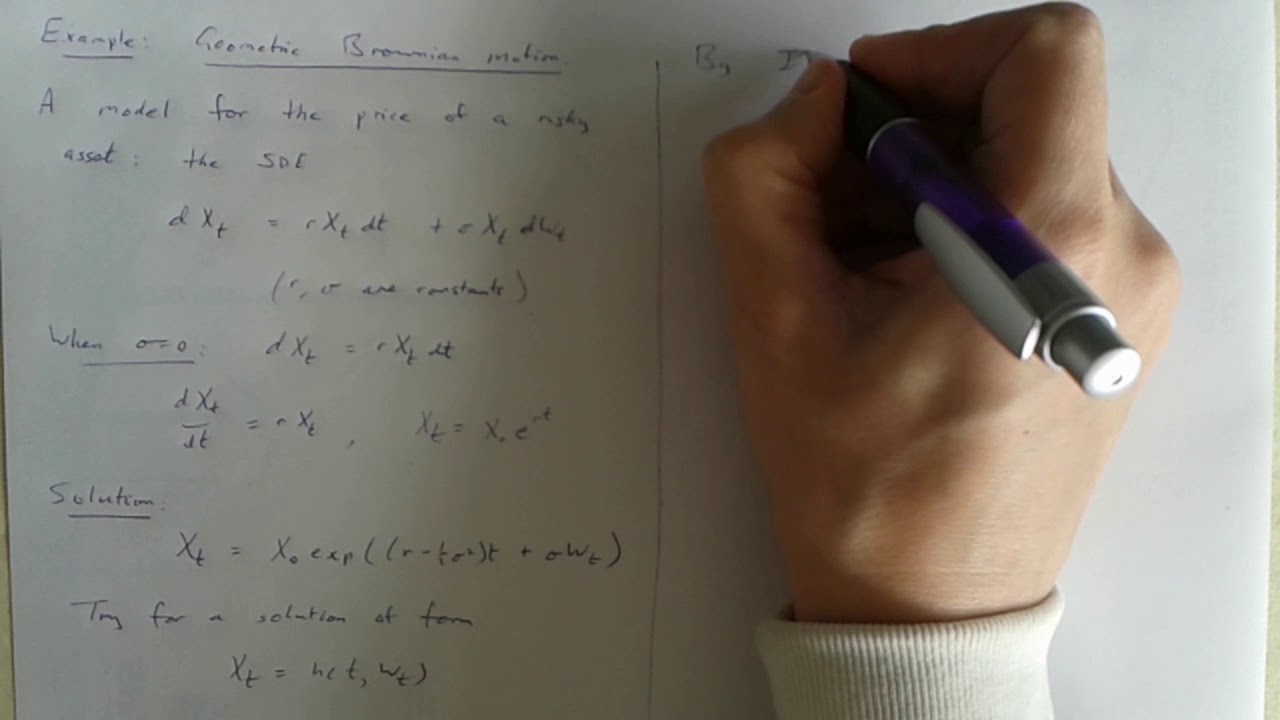 Example: Geometric Brownian motion
A model for the price of a risky
asset: the SDE
dX_t = rX_t dt + σX_t dW_t
(r, σ are constants)
When σ=0: dX_t = rX_t dt
dX_t/dt = rX_t, X_t = X_0 e^{rt}
Solution:
X_t = X_0 exp((r-½σ²)t + σW_t)
Try for a solution of form
X_t = h(t, W_t)
By